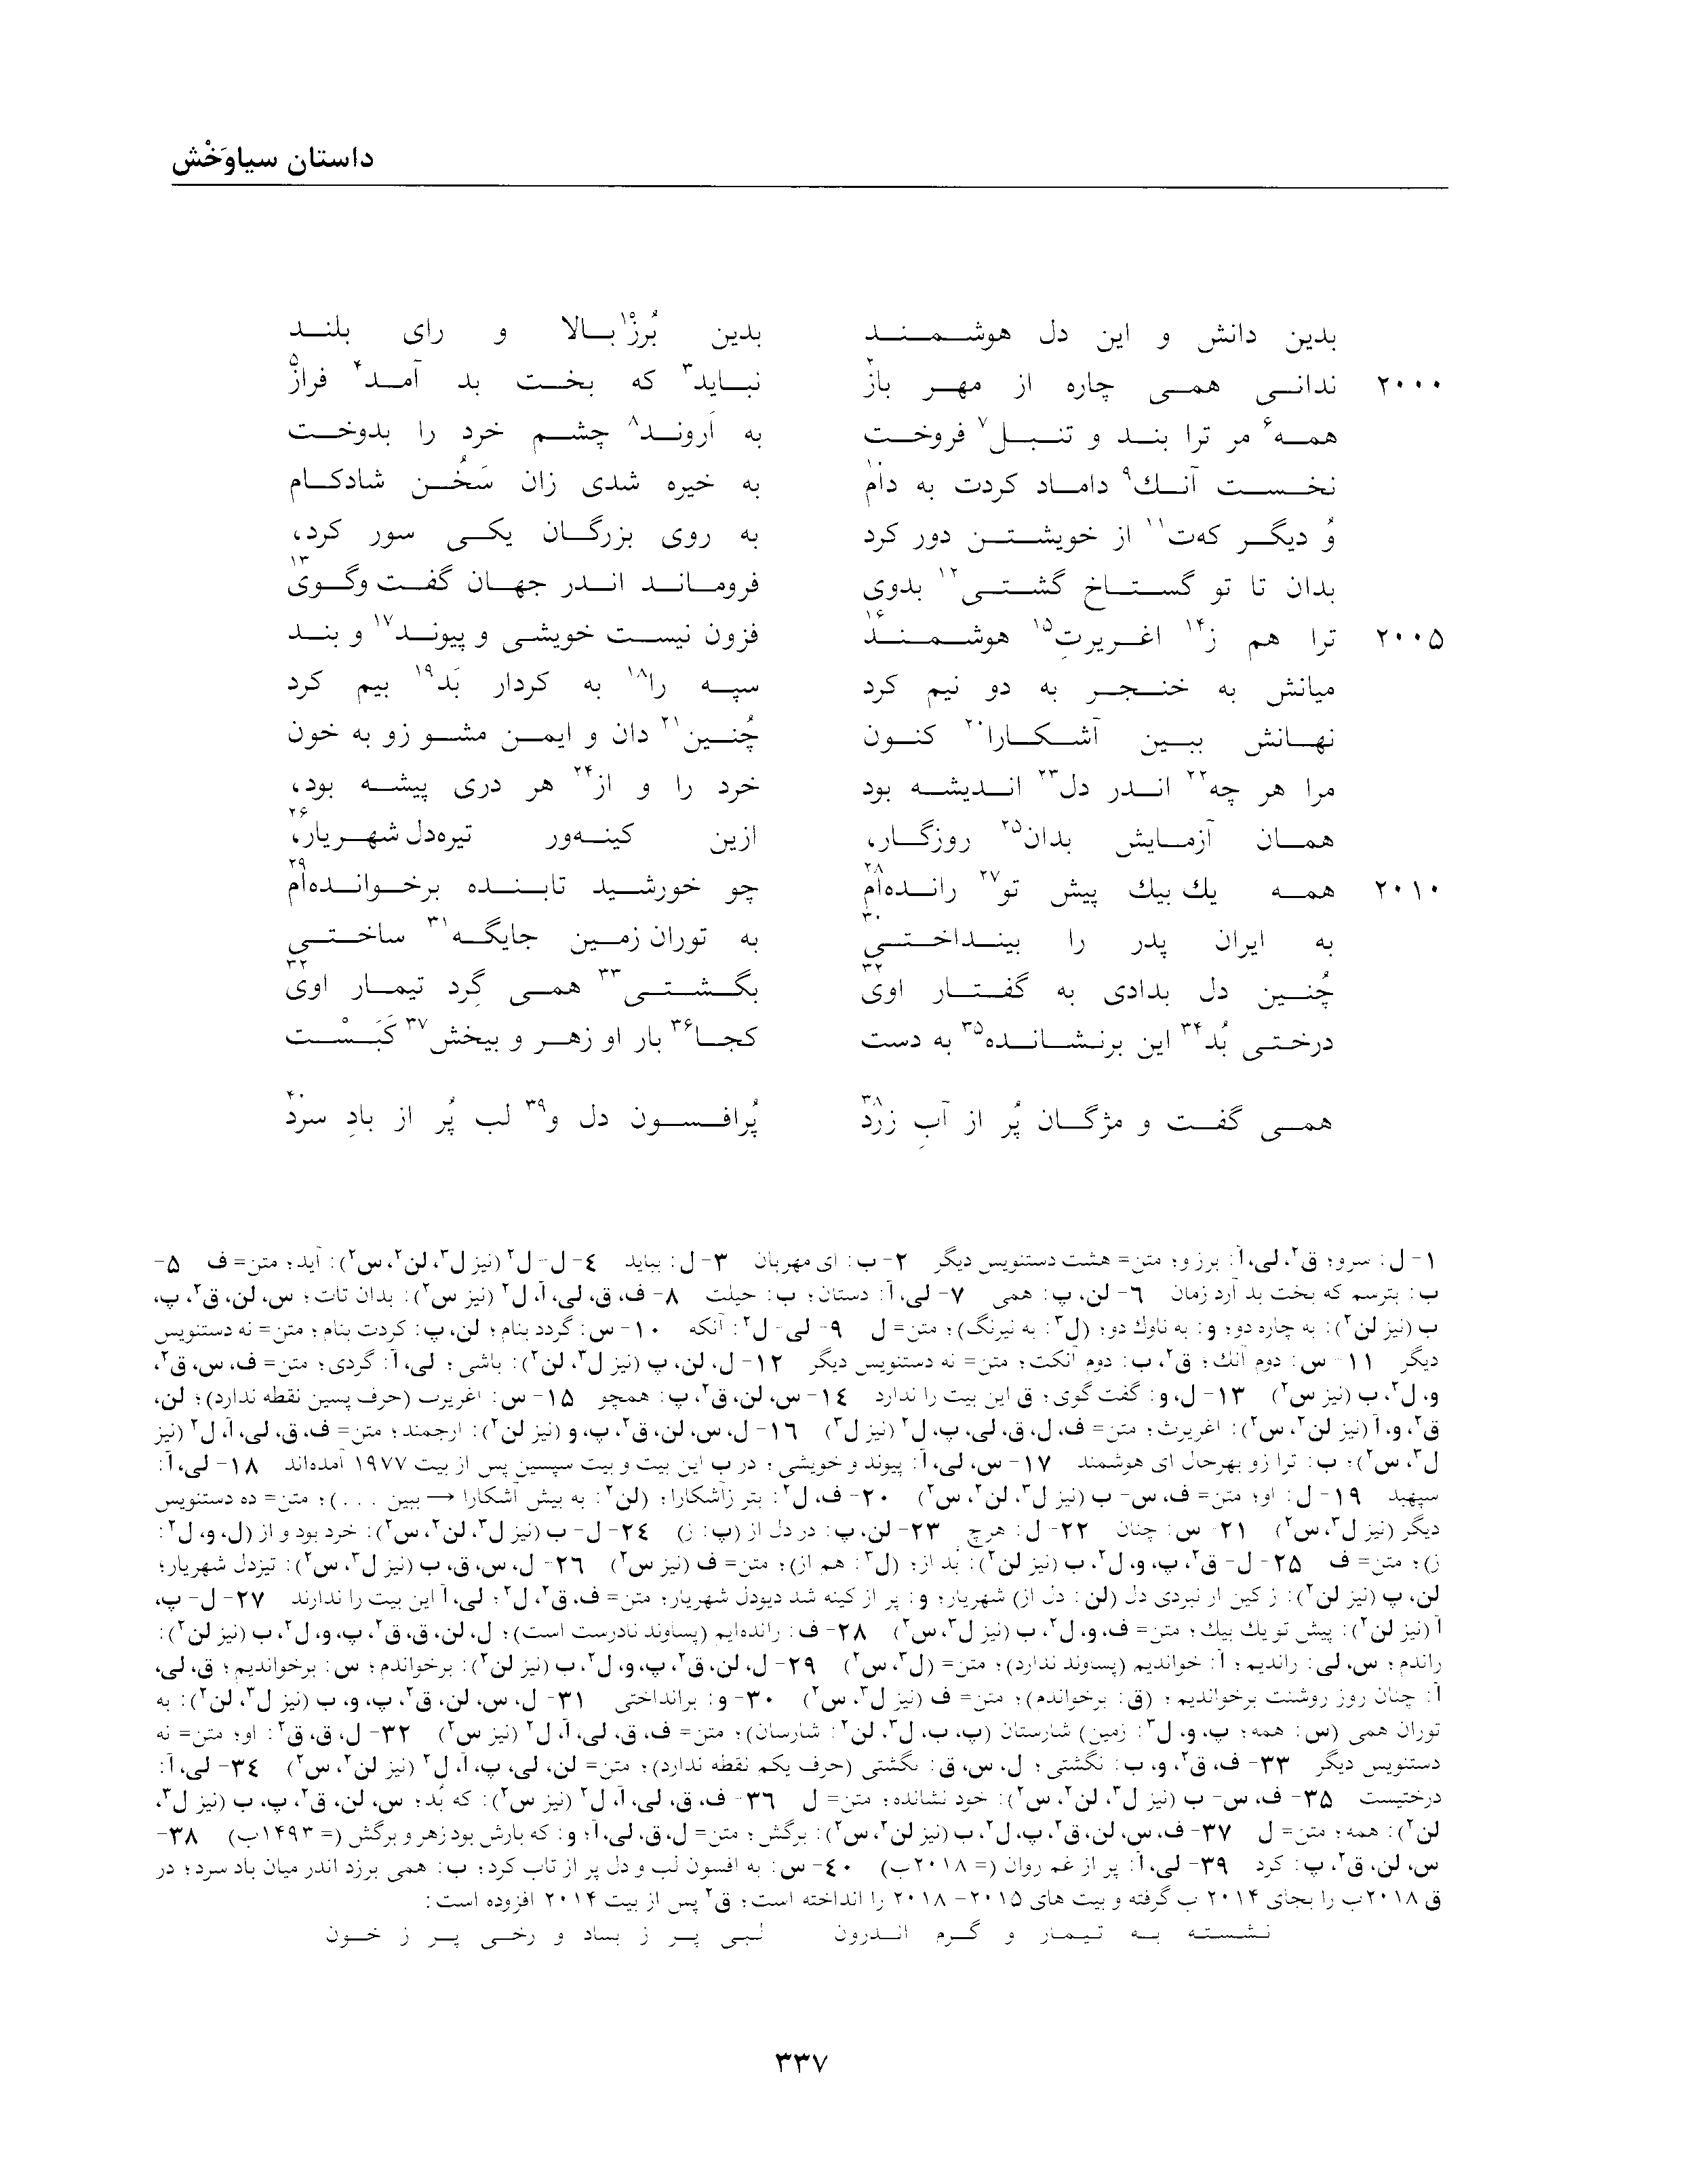 داستان سیاوَخْش
بدین دانش و این دل هوشمند بدین بُرز۱ بالا و رای بلند
۲۰۰۰ ندانی همی چاره از مهر باز۲ نباید۳ که بخت بد آمد۴ فراز۵
همه۶ مر ترا بند و تنبل۷ فروخت به اَروند۸ چشم خرد را بدوخت
نخست آنك۹ داماد کردت به دام۱۰ به خیره شدی زان سَخُن شادکام
وُ دیگر که‌ت۱۱ از خویشتن دور کرد به روی بزرگان یکی سور کرد،
بدان تا تو گستاخ گشتی۱۲ بدوی فروماند اندر جهان گفت وگوی۱۳
۲۰۰۵ ترا هم ز۱۴ اغریرتِ۱۵ هوشمند۱۶ فزون نیست خویشی و پیوند۱۷ و بند
میانش به خنجر به دو نیم کرد سپه را۱۸ به کردار بَد۱۹ بیم کرد
نهانش ببین آشکارا۲۰ کنون چُنین۲۱ دان و ایمن مشو زو به خون
مرا هر چه۲۲ اندر دل۲۳ اندیشه بود خرد را و از۲۴ هر دری پیشه بود،
همان آزمایش بدان۲۵ روزگار، ازین کینه‌ور تیره‌دل شهریار،۲۶
۲۰۱۰ همه یك بیك پیش تو۲۷ رانده‌ام۲۸ چو خورشید تابنده برخوانده‌ام۲۹
به ایران پدر را بینداختی۳۰ به توران زمین جایگه۳۱ ساختی
چُنین دل بدادی به گفتار اوی۳۲ بگشتی۳۳ همی گِرد تیمار اوی۳۲
درختی بُد۳۴ این برنشانده۳۵ به دست کجا۳۶ بار او زهر و بیخش۳۷ کَبَسْت
همی گفت و مژگان پُر از آبِ زرد۳۸ پُرافسون دل و۳۹ لب پُر از بادِ سرد۴۰
۱- ل: سرو؛ ق۲، لی، آ: برزو؛ متن= هشت دستنویس دیگر ۲- ب: ای مهربان ۳- ل: بیاید ٤- ل- ل۲ (نیز ل۳، لن۲، س۲): آید؛ متن= ف ۵-
ب: بترسم که بخت بد آرد زمان ٦- لن، پ: همی ۷- لی، آ: دستان؛ ب: حیلت ۸- ف، ق، لی، آ، ل۲ (نیز س۲): بدان تات؛ س، لن، ق۲، پ،
ب (نیز لن۲): به چاره دو؛ و: به ناوك دو؛ (ل۳: به نیرنگ)؛ متن= ل ۹- لی- ل۲: آنکه ۱۰- س: گردد بنام؛ لن، پ: کردت بنام؛ متن= نه دستنویس
دیگر ۱۱- س: دوم آنك؛ ق۲، ب: دوم آنکت؛ متن= نه دستنویس دیگر ۱۲- ل، لن، پ (نیز ل۳، لن۲): باشی؛ لی، آ: گردی؛ متن= ف، س، ق۲،
و، ل۲، ب (نیز س۲) ۱۳- ل، و: گفت گوی؛ ق این بیت را ندارد ۱٤- س، لن، ق۲، پ: همچو ۱۵- س: اغریرب (حرف پسین نقطه ندارد)؛ لن،
ق۲، و، آ (نیز لن۲، س۲): اغریرث؛ متن= ف، ل، ق، لی، پ، ل۲ (نیز ل۳) ۱٦- ل، س، لن، ق۲، پ، و (نیز لن۲): ارجمند؛ متن= ف، ق، لی، آ، ل۲ (نیز
ل۳، س۲)؛ ب: ترا زو بهرحال ای هوشمند ۱۷- س، لی، آ: پیوند و خویشی؛ در ب این بیت و بیت سپسین پس از بیت ۱۹۷۷ آمده‌اند ۱۸- لی، آ:
سپهبد ۱۹- ل: او؛ متن= ف، س- ب (نیز ل۳، لن۲، س۲) ۲۰- ف، ل۲: بتر زآشکارا؛ (لن۲: به بیش آشکارا ← ببین ...)؛ متن= ده دستنویس
دیگر (نیز ل۳، س۲) ۲۱- س: چنان ۲۲- ل: هرچ ۲۳- لن، پ: در دل از (پ: ز) ۲٤- ل- ب (نیز ل۳، لن۲، س۲): خرد بود و از (ل، و، ل۲:
ز)؛ متن= ف ۲۵- ل- ق۲، پ، و، ل۲، ب (نیز لن۲): بُد از؛ (ل۳: هم از)؛ متن= ف (نیز س۲) ۲٦- ل، س، ق، ب (نیز ل۳، س۲): تیزدل شهریار؛
لن، پ (نیز لن۲): ز کین از نبردی دل (لن: دل از) شهریار؛ و: پر از کینه شد دیودل شهریار؛ متن= ف، ق۲، ل۲؛ لی، آ این بیت را ندارند ۲۷- ل- پ،
آ (نیز لن۲): پیش تو یك بیك؛ متن= ف، و، ل۲، ب (نیز ل۳، س۲) ۲۸- ف: رانده‌ایم (پساوند نادرست است)؛ ل، لن، ق، ق۲، پ، و، ل۲، ب (نیز لن۲):
راندم؛ س، لی: راندیم؛ آ: خواندیم (پساوند ندارد)؛ متن= (ل۳، س۲) ۲۹- ل، لن، ق۲، پ، و، ل۲، ب (نیز لن۲): برخواندم؛ س: برخواندیم؛ ق، لی،
آ: چنان روز روشنت برخواندیم؛ (ق: برخواندم)؛ متن= ف (نیز ل۳، س۲) ۳۰- و: برانداختی ۳۱- ل، س، لن، ق۲، پ، و، ب (نیز ل۳، لن۲): به
توران همی (س: همه؛ پ، و، ل۳: زمین) شارستان (پ، ب، ل۳، لن۲: شارسان)؛ متن= ف، ق، لی، آ، ل۲ (نیز س۲) ۳۲- ل، ق، ق۲: او؛ متن= نه
دستنویس دیگر ۳۳- ف، ق۲، و، ب: نگشتی؛ ل، س، ق: ںگشتی (حرف یکم نقطه ندارد)؛ متن= لن، لی، پ، آ، ل۲ (نیز لن۲، س۲) ۳٤- لی، آ:
درختیست ۳۵- ف، س- ب (نیز ل۳، لن۲، س۲): خود نشانده؛ متن= ل ۳٦- ف، ق، لی، آ، ل۲ (نیز س۲): که بُد؛ س، لن، ق۲، پ، ب (نیز ل۳،
لن۲): همه؛ متن= ل ۳۷- ف، س، لن، ق۲، پ، ل۲، ب (نیز لن۲، س۲): برگش؛ متن= ل، ق، لی، آ؛ و: که بارش بود زهر و برگش (= ۱۴۹۳ب) ۳۸-
س، لن، ق۲، پ: کرد ۳۹- لی، آ: پر از غم روان (= ۲۰۱۸ب) ٤۰- س: به افسون لب و دل پر از تاب کرد؛ ب: همی برزد اندر میان باد سرد؛ در
ق ۲۰۱۸ب را بجای ۲۰۱۴ ب گرفته و بیت های ۲۰۱۵- ۲۰۱۸ را انداخته است؛ ق۲ پس از بیت ۲۰۱۴ افزوده است:
نشسته به تیمار و گرم اندرون لبی پر ز بساد و رخی پر ز خون
۳۳۷